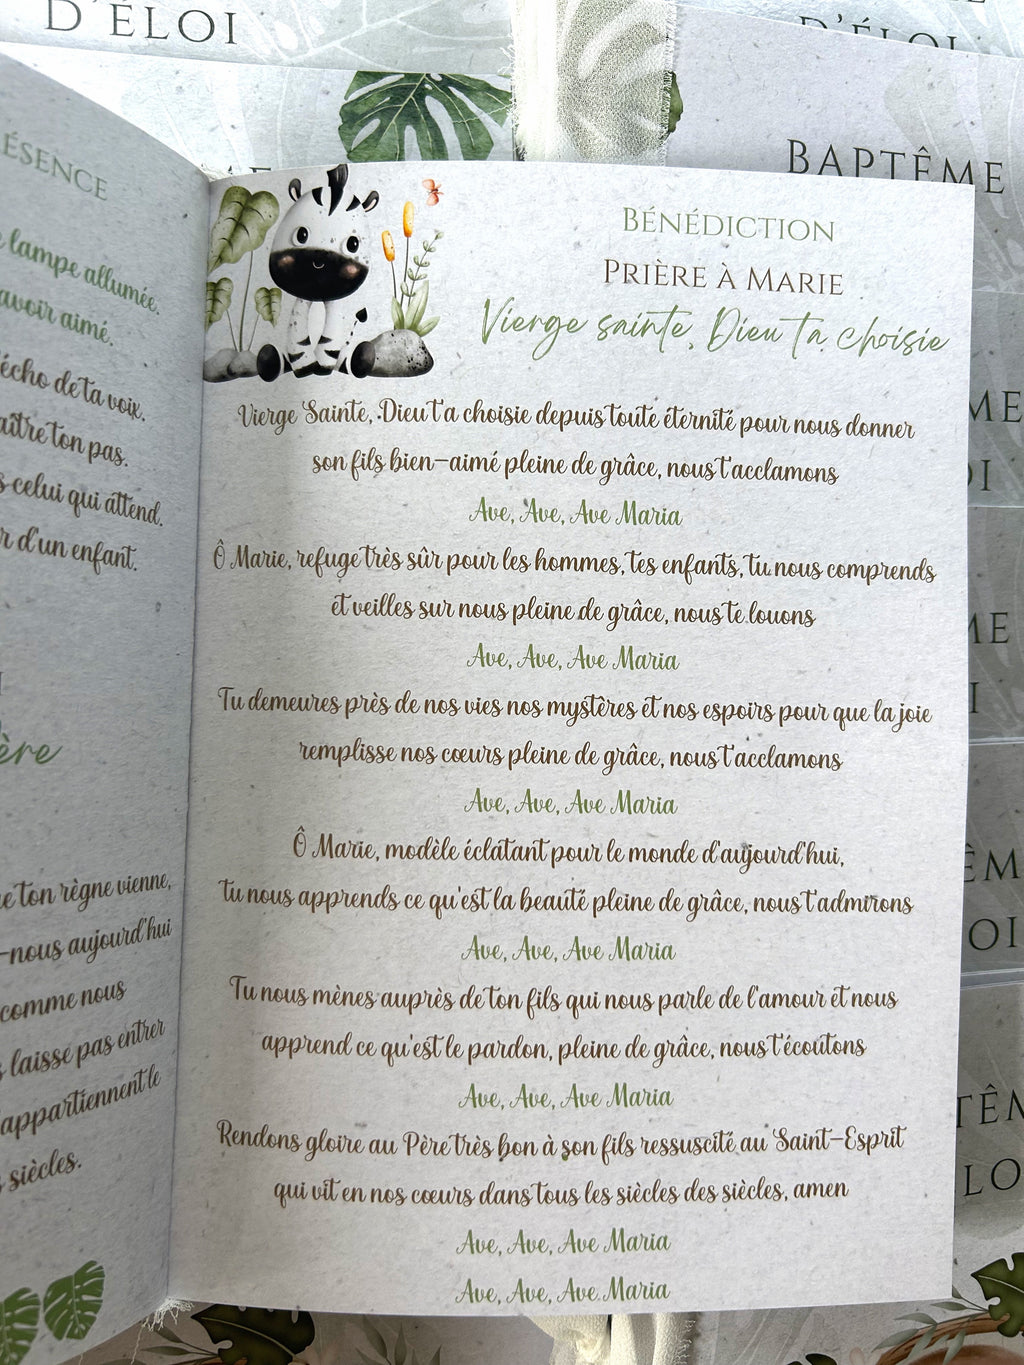 D'ÉLOI
D'ÉLOI
BAPTÊME
ÉSENCE
lampe allumée.
avoir aimé.
écho de ta voix.
ton pas.
celui qui attend.
d'un enfant.
ère
ton règne vienne,
-nous aujourd'hui
comme nous
laisse pas entrer
appartiennent le
siècles.
BÉNÉDICTION
PRIÈRE À MARIE
Vierge sainte, Dieu t'a choisie
Vierge Sainte, Dieu t'a choisie depuis toute éternité pour nous donner
son fils bien-aimé pleine de grâce, nous t'acclamons
Ave, Ave, Ave Maria
Ô Marie, refuge très sûr pour les hommes, tes enfants, tu nous comprends
et veilles sur nous pleine de grâce, nous te louons
Ave, Ave, Ave Maria
Tu demeures près de nos vies nos mystères et nos espoirs pour que la joie
remplisse nos cœurs pleine de grâce, nous t'acclamons
Ave, Ave, Ave Maria
Ô Marie, modèle éclatant pour le monde d'aujourd'hui,
tu nous apprends ce qu'est la beauté pleine de grâce, nous t'admirons
Ave, Ave, Ave Maria
Tu nous mènes auprès de ton fils qui nous parle de l'amour et nous
apprend ce qu'est le pardon, pleine de grâce, nous t'écoutons
Ave, Ave, Ave Maria
Rendons gloire au Père très bon à son fils ressuscité au Saint-Esprit
qui vit en nos cœurs dans tous les siècles des siècles, amen
Ave, Ave, Ave Maria
Ave, Ave, Ave Maria